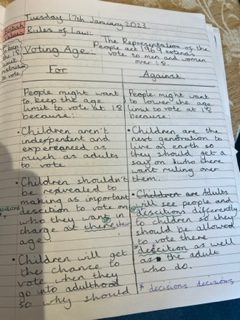 Tuesday 17th January 2023
Rules of Law:
The Representation of the
People Act 1969 extends
vote to men and women
over 18.
Voting Age
For
Against
People might want
to keep the age
limit to vote at 18
because:
• Children aren't
independent and
experienced as
much as adults
to vote.
• Children shouldn't
be
making as important
to vote on
who they want in
charge at
age.
• Children will get
the chance to
vote when they
go into adulthood
so why should
People might want
to lower the age
limit to vote at 18
because:
• Children are the
next generation to
live on earth so
they should get a
say on who
want ruling over
them.
• Children are Adults
will see people and
differently
to children so they
should be allowed
to vote
as well
as the adult
who do.
* decisions decisions